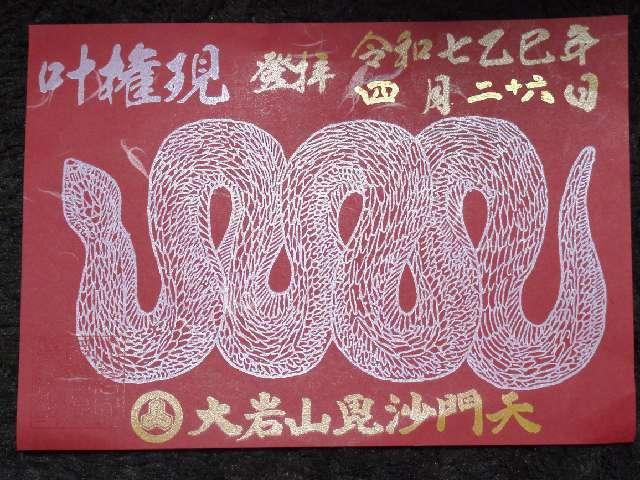 叶権現 登拝 令和七乙巳年
四月二十六日
大岩山毘沙門天